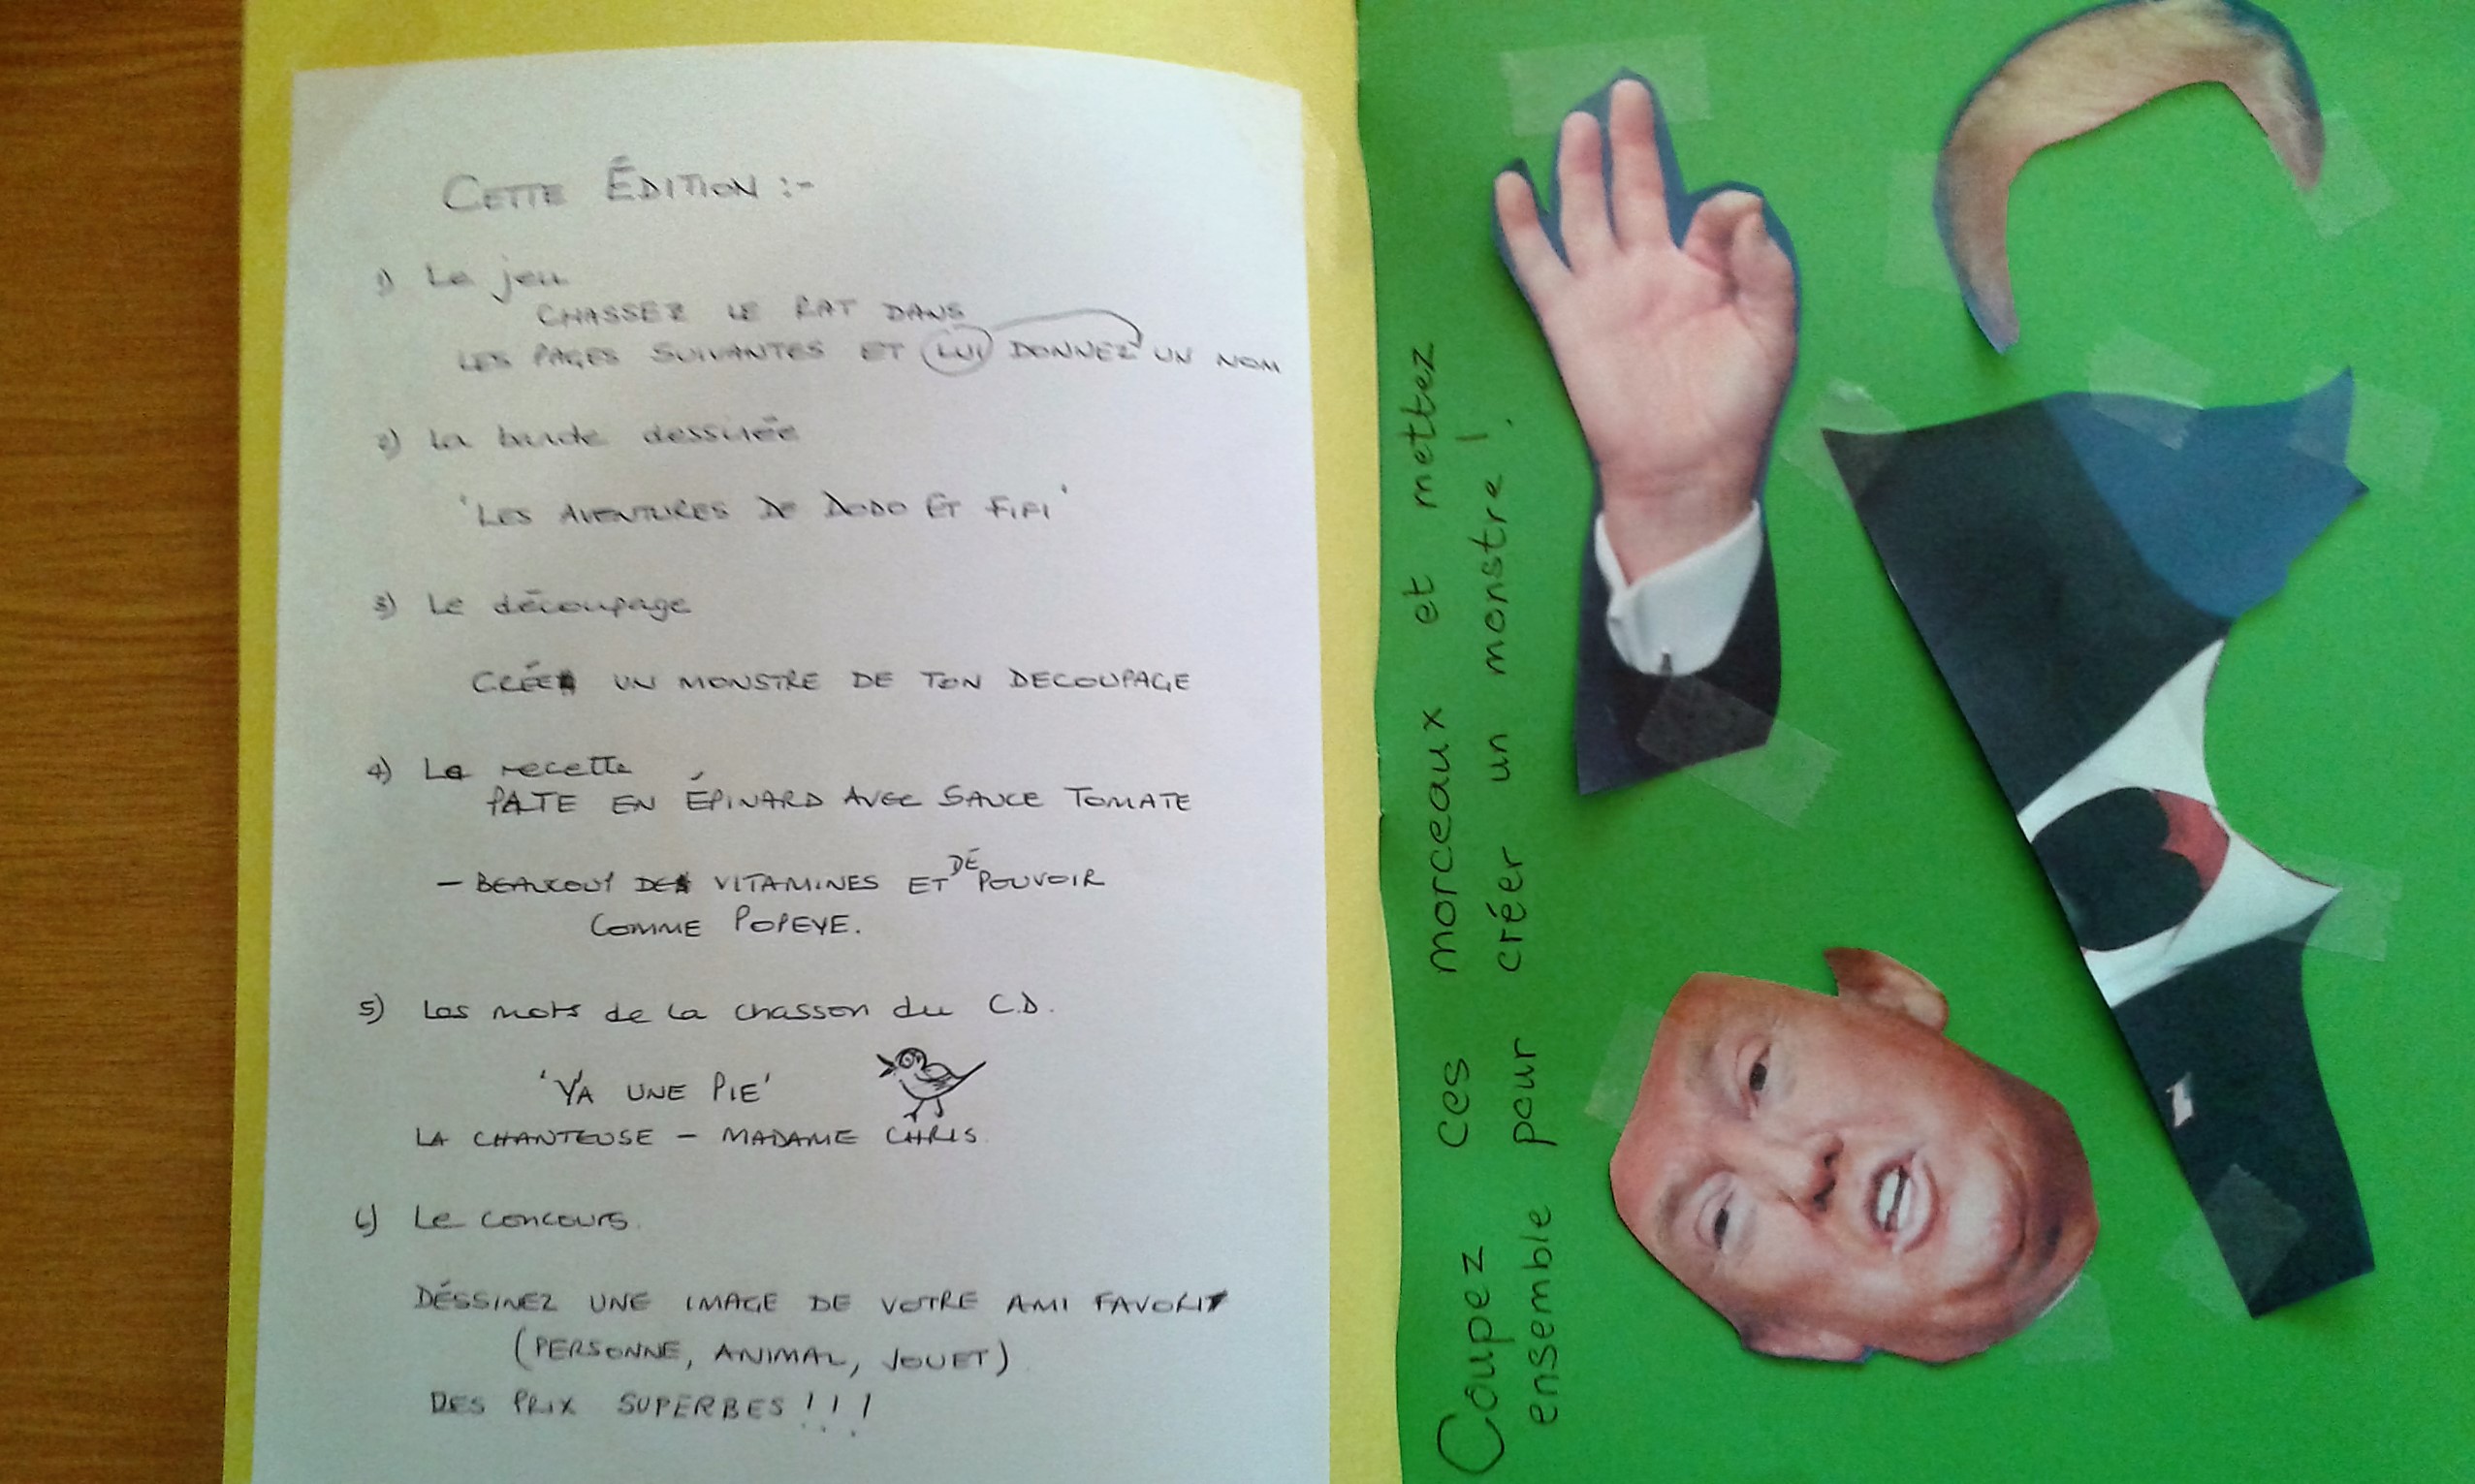 CETTE ÉDITION :-
1) Le jeu
CHASSEZ LE RAT DANS
LES PAGES SUIVANTES ET LUI DONNEZ UN NOM
2) La bande dessinée
'LES AVENTURES DE DODO ET FIFI'
3) Le découpage
CRÉE UN MONSTRE DE TON DECOUPAGE
4) La recette
PATE EN ÉPINARD AVEC SAUCE TOMATE
- BEAUCOUP DE VITAMINES ET DE POUVOIR
COMME POPEYE.
5) Les mots de la chasson du C.D.
'Y'A UNE PIE'
LA CHANTEUSE - MADAME CHRIS
6) Le concours.
DÉSSINEZ UNE IMAGE DE VOTRE AMI FAVORI
(PERSONNE, ANIMAL, JOUET)
DES PRIX SUPERBES!!!
Coupez ces morceaux et mettez
ensemble pour créer un monstre!